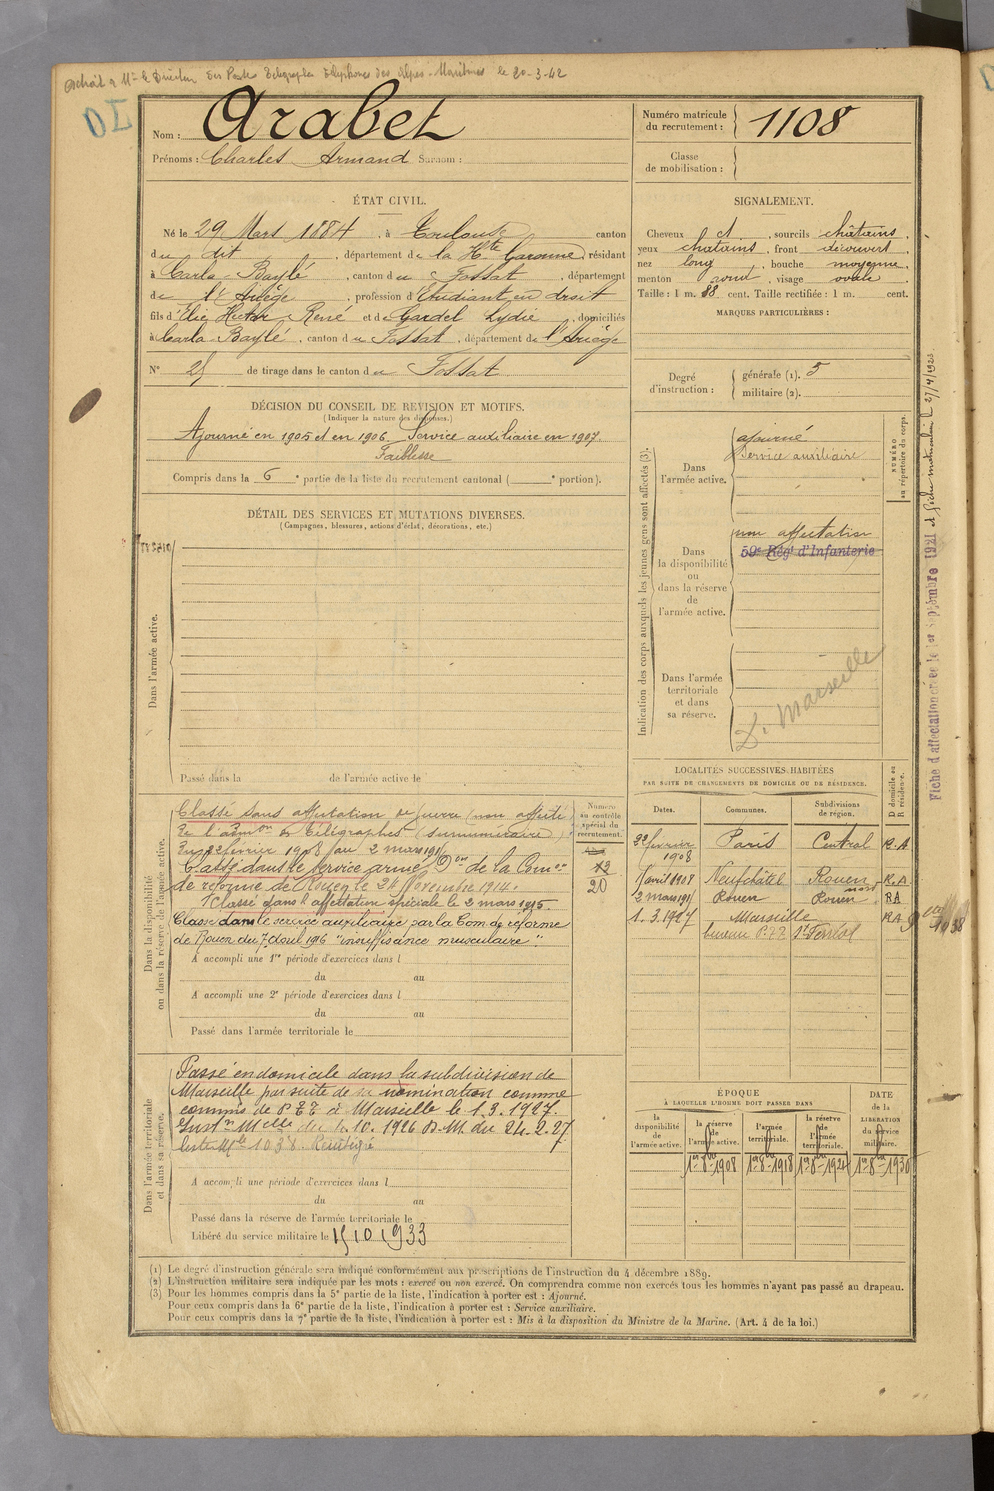 Extrait à Mr le Directeur des Postes Télégraphes Téléphones des Alpes-Maritimes le 20-3-42
Nom : Arabet
Prénoms : Charles Armand Surnom :
Numéro matricule du recrutement : 1108
Classe de mobilisation :
ÉTAT CIVIL.
Né le 29 Mars 1884, à Toulouse canton
du dit, département de la Hte Garonne, résidant
à Carla-Baylé, canton du Fossat, département
de l'Ariège, profession d'Etudiant en droit
fils d'Elie Hector René et de Gardel Lydie, domiciliés
à Carla-Baylé, canton du Fossat, département de l'Ariège
N° 25 de tirage dans le canton du Fossat
SIGNALEMENT.
Cheveux et, sourcils châtains,
yeux châtains, front découvert
nez long, bouche moyenne,
menton rond, visage ovale
Taille : 1 m. 88 cent. Taille rectifiée : 1 m. cent.
MARQUES PARTICULIÈRES :
Degré d'instruction : générale (1). 5
militaire (2).
DÉCISION DU CONSEIL DE REVISION ET MOTIFS.
(Indiquer la nature des dispenses.)
Ajourné en 1905 et en 1906. Service auxiliaire en 1907.
Faiblesse
Compris dans la 6e partie de la liste du recrutement cantonal ( e portion).
DÉTAIL DES SERVICES ET MUTATIONS DIVERSES.
(Campagnes, blessures, actions d'éclat, décorations, etc.)
Dans l'armée active.
Passé dans la de l'armée active le
Indication des corps auxquels les jeunes gens sont affectés (3).
NUMÉRO au répertoire du corps.
Dans l'armée active.
ajourné
Service auxiliaire
Dans la disponibilité ou dans la réserve de l'armée active.
non affectation
59e Régt d'Infanterie
Dans l'armée territoriale et dans sa réserve.
D. Marseille
Fiche d'affectation créée le 1er Septembre 1921 et fiche matricule le 27/4/1923
Dans la disponibilité ou dans la réserve de l'armée active.
Numéro au contrôle spécial du recrutement.
Classé sans affectation de guerre (non affecté)
de l'admon des Télégraphes (surnuméraire)
du 22 février 1908 au 2 mars 1911
Classé dans le service armé Don de la Comon
de réforme de Rouen le 26 Novembre 1914.
Classé dans l'affectation spéciale le 2 mars 1915.
Classé dans le service auxiliaire par la Com. de réforme
de Rouen du 7 Avril 1916 "insuffisance musculaire"
20
A accompli une 1re période d'exercices dans l
du au
A accompli une 2e période d'exercices dans l
du au
Passé dans l'armée territoriale le
LOCALITÉS SUCCESSIVES HABITÉES
PAR SUITE DE CHANGEMENTS DE DOMICILE OU DE RÉSIDENCE.
Dates. Communes. Subdivisions de région. D domicile ou R résidence.
22 février 1908 Paris Central R.A
1 avril 1908 Neufchâtel Rouen nord R.A
2 mars 1911 Rouen Rouen RA
1.3.1927 Marseille RA
bureau P.T.T. St Ferréol
1038
Dans l'armée territoriale et dans sa réserve.
Passé en domicile dans la subdivision de
Marseille par suite de sa nomination comme
commis de P T T à Marseille le 1.3.1927.
Instn Melle du 1.10.1926 B.M. du 24-2-27
liste Mle 1038
A accompli une période d'exercices dans l
du au
Passé dans la réserve de l'armée territoriale le
Libéré du service militaire le 15 10 1933
ÉPOQUE
À LAQUELLE L'HOMME DOIT PASSER DANS
la disponibilité de l'armée active.
la réserve de l'armée active.
l'armée territoriale.
la réserve de l'armée territoriale.
DATE de la LIBÉRATION du service militaire.
1er 8bre 1908 1er 8bre 1918 1er 8bre 1924 1er 8bre 1930
(1) Le degré d'instruction générale sera indiqué conformément aux prescriptions de l'instruction du 4 décembre 1889.
(2) L'instruction militaire sera indiquée par les mots : exercé ou non exercé. On comprendra comme non exercés tous les hommes n'ayant pas passé au drapeau.
(3) Pour les hommes compris dans la 5e partie de la liste, l'indication à porter est : Ajourné.
Pour ceux compris dans la 6e partie de la liste, l'indication à porter est : Service auxiliaire.
Pour ceux compris dans la 7e partie de la liste, l'indication à porter est : Mis à la disposition du Ministre de la Marine. (Art. 4 de la loi.)